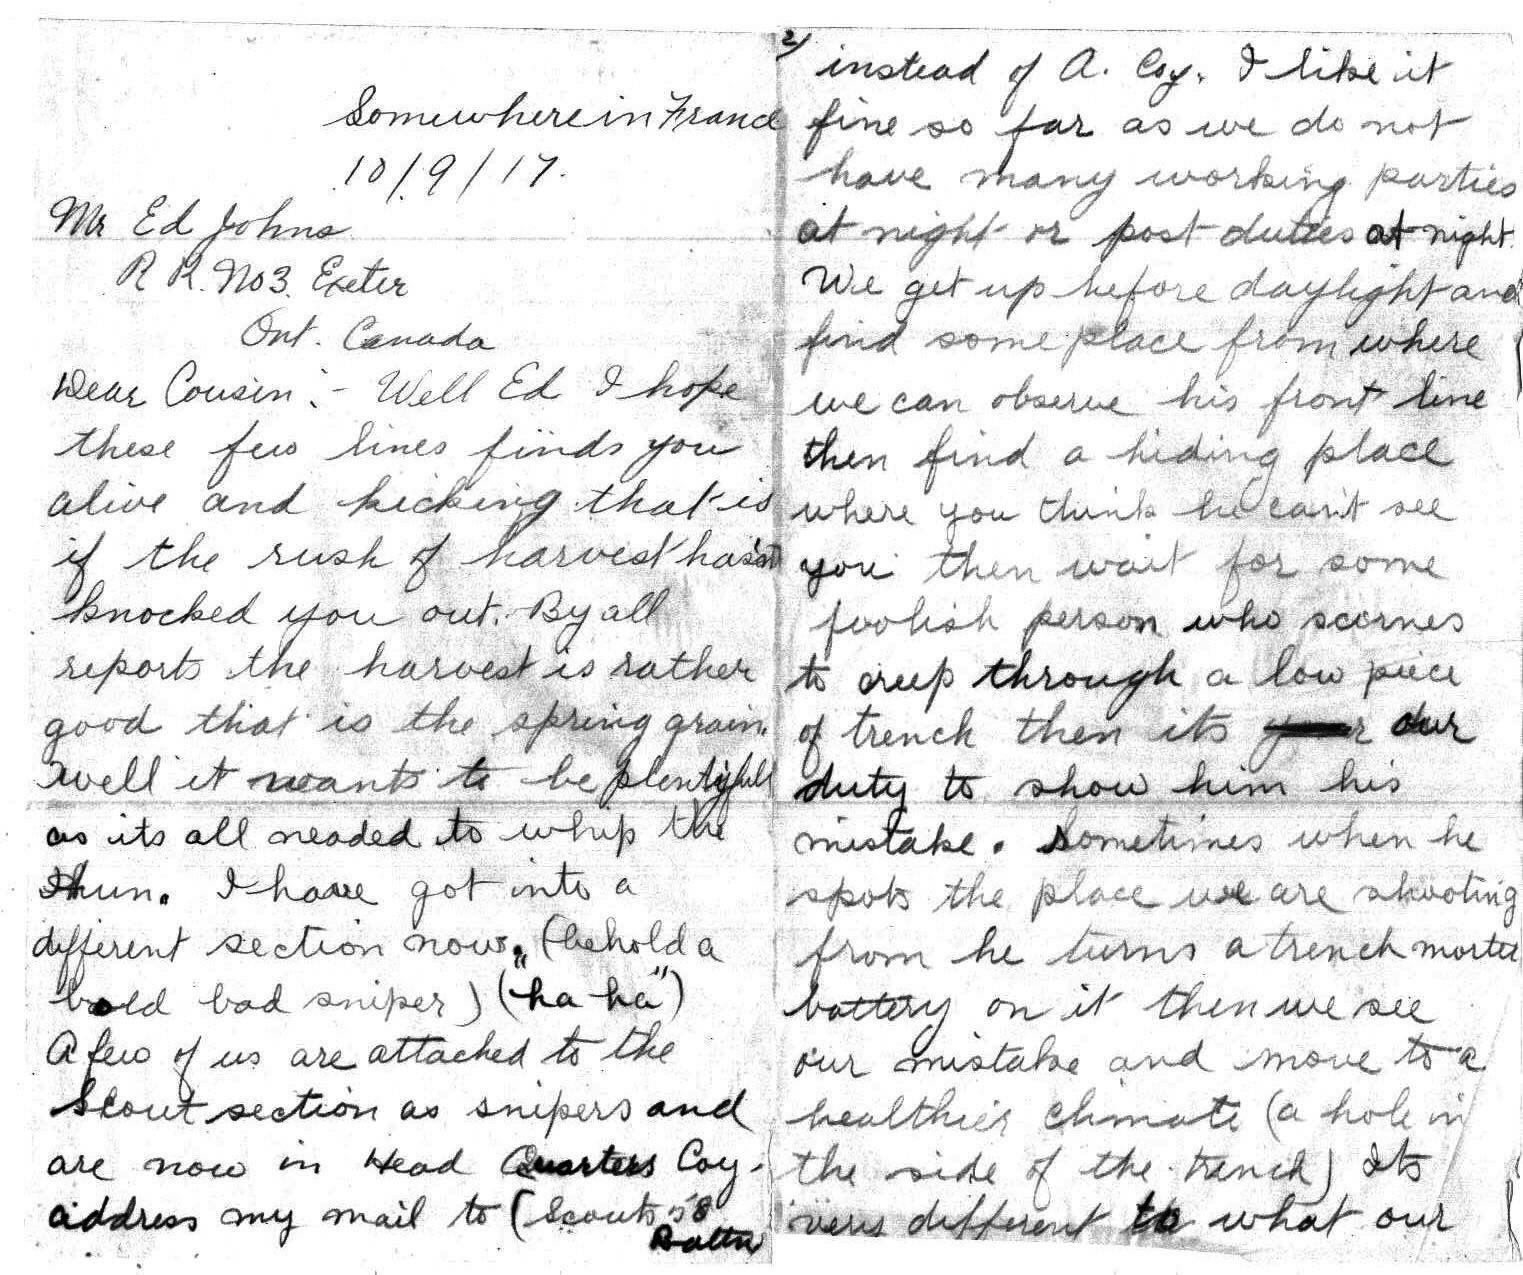 Somewhere in France
10/9/17.
Mr Ed Johns
R R. No 3. Exeter
Ont. Canada
Dear Cousin:- Well Ed I hope
these few lines finds you
alive and kicking that is
if the rush of harvest hasn't
knocked you out. By all
reports the harvest is rather
good that is the spring grain.
Well it wants to be plentyfull
as its all neaded to whip the
Hun. I have got into a
different section now. (behold a
bold bad sniper) ("ha-ha")
A few of us are attached to the
Scout section as snipers and
are now in Head Quarters Coy.
address my mail to (Scouts 58
Battn
2/
instead of A. Coy. I like it
fine so far as we do not
have many working parties
at night or post duties at night.
We get up before daylight and
find some place from where
we can observe his front line
then find a hiding place
where you think he can't see
you then wait for some
foolish person who scornes
to creep through a low piece
of trench then its our
duty to show him his
mistake. Sometimes when he
spots the place we are shooting
from he turns a trench morter
battery on it then we see
our mistake and move to a
healthier climate (a hole in
the side of the trench) Its
very different to what our